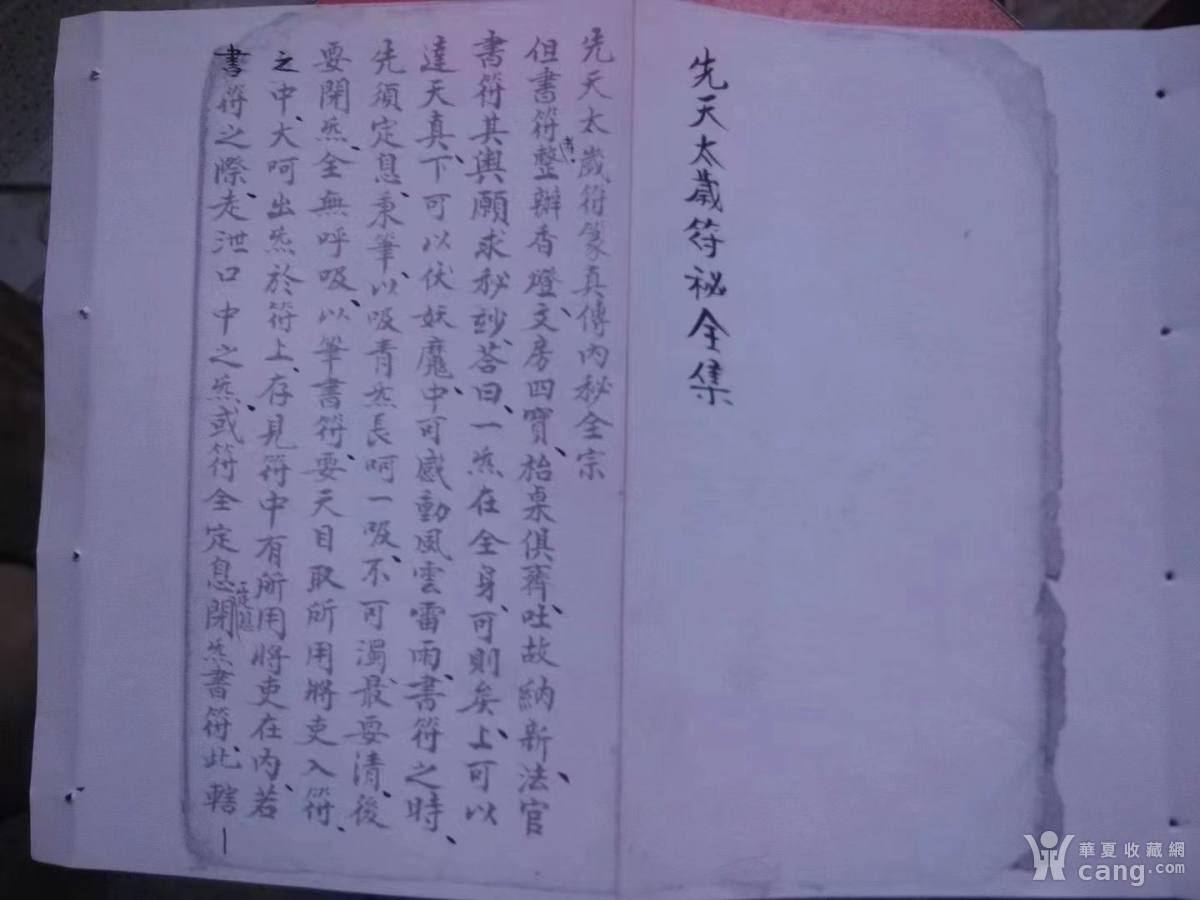 先天太歲符秘全集
先天太歲符篆真傳內秘全宗
但書符整辦香燈、文房四寶、枱桌俱齊、吐故納新、法官
書符其輿願求秘妙、答曰、一炁在全身、可則矣、上、可以
達天真、下、可以伏妖魔、中可感動風雲雷雨、書符之時、
先須定息、秉筆、以吸青炁長呵一吸、不可濁、最要清、後
要閉炁、全無呼吸、以筆書符、要天目取所用將吏入符、
之中、大呵出炁於符上、存見符中有所用將吏在內、若
書符之際、走泄口中之炁、或符全定息閉炁書符、此轄
定息
華夏收藏網
cang.com